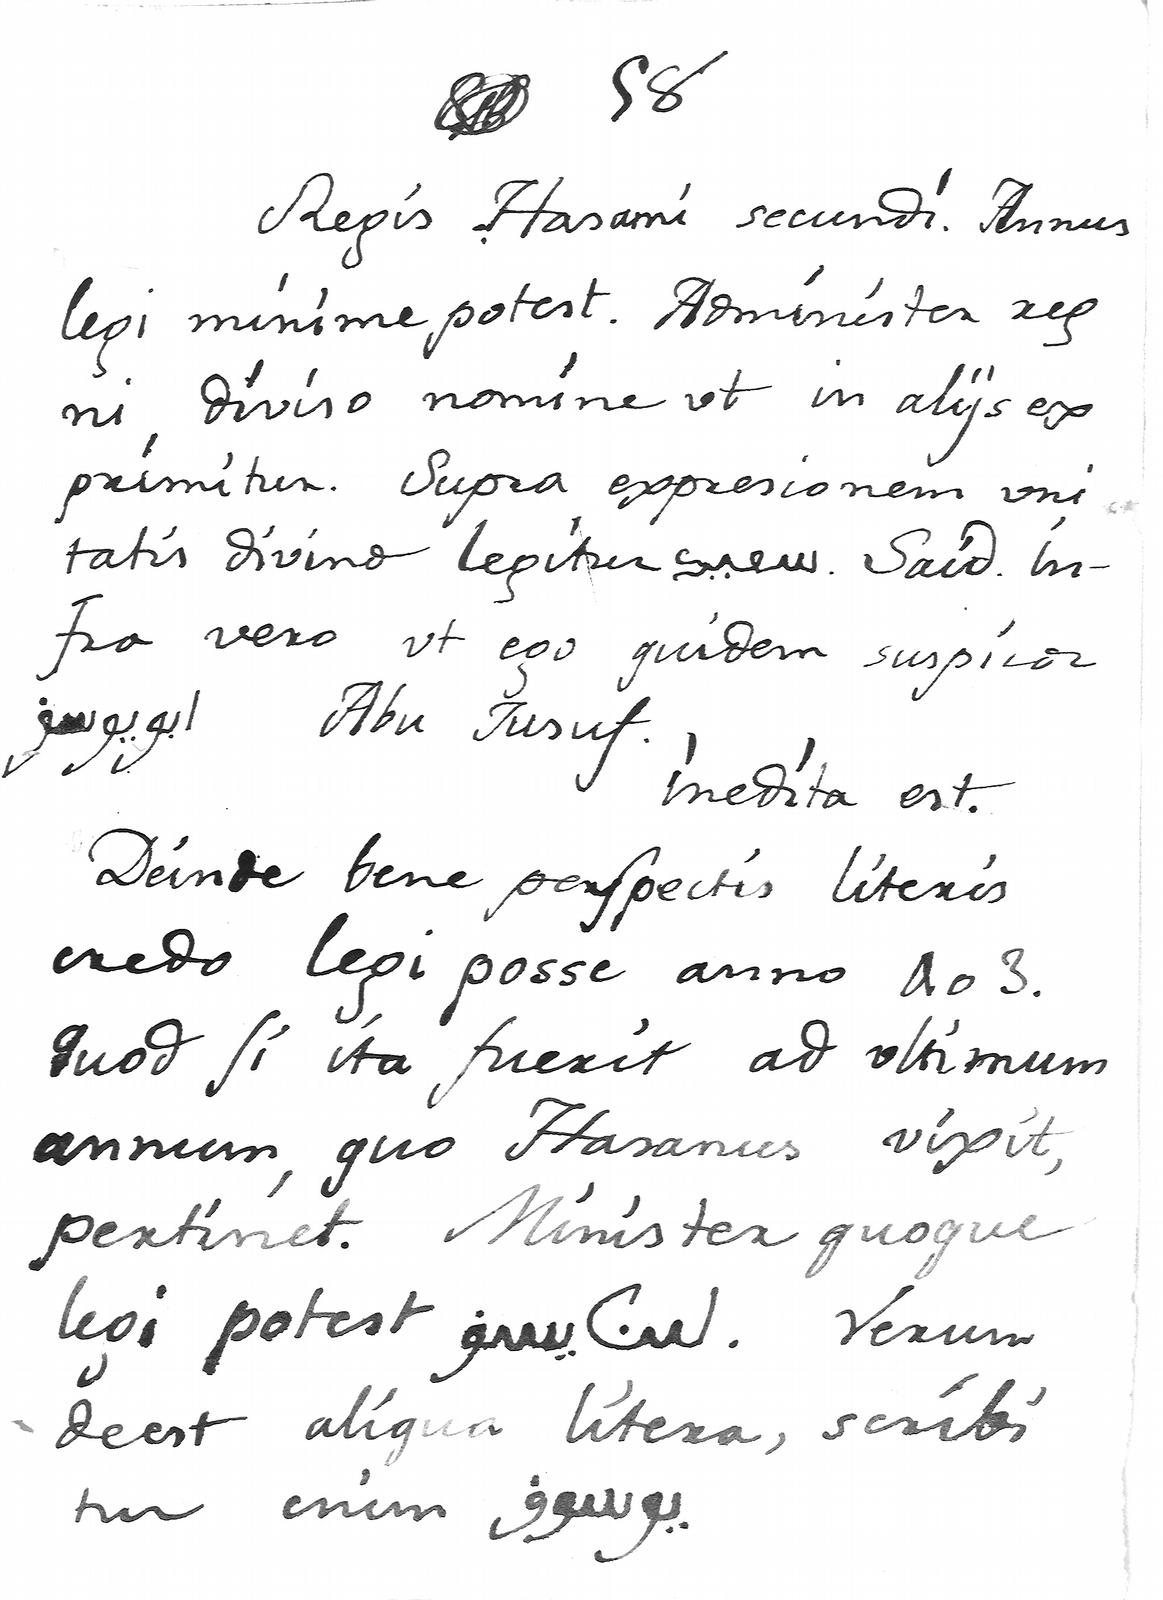 58
Regis Hasami secundi. Annus
legi minime potest. Administer reg
ni, diviso nomine vt in alijs ex
primitur. Supra expresionem vni
tatis divinæ legitur سعيد. Said. in-
fra vero vt ego quidem suspicor
ابو يوسف Abu Jusuf.
inedita est.
Deinde bene perspectis literis
credo legi posse anno 403.
quod si ita fuerit ad vltimum
annum, quo Hasanus vixit,
pertinet. Minister quoque
legi potest يسف. Verum
deest aliqua litera, scribi
tur enim يوسوف